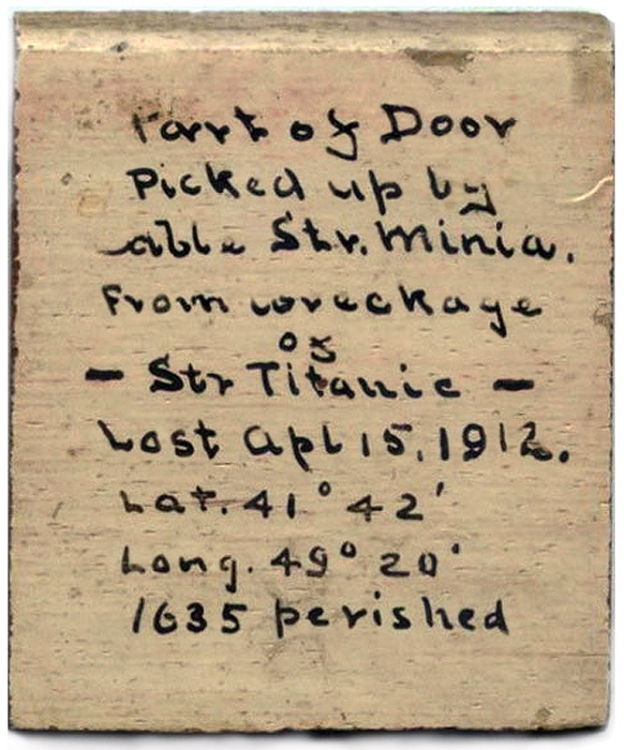 Part of Door
Picked up by
able Str. Minia.
From wreckage
of
- Str Titanic -
Lost Apl 15, 1912.
Lat. 41° 42'
Long. 49° 20'
1635 perished